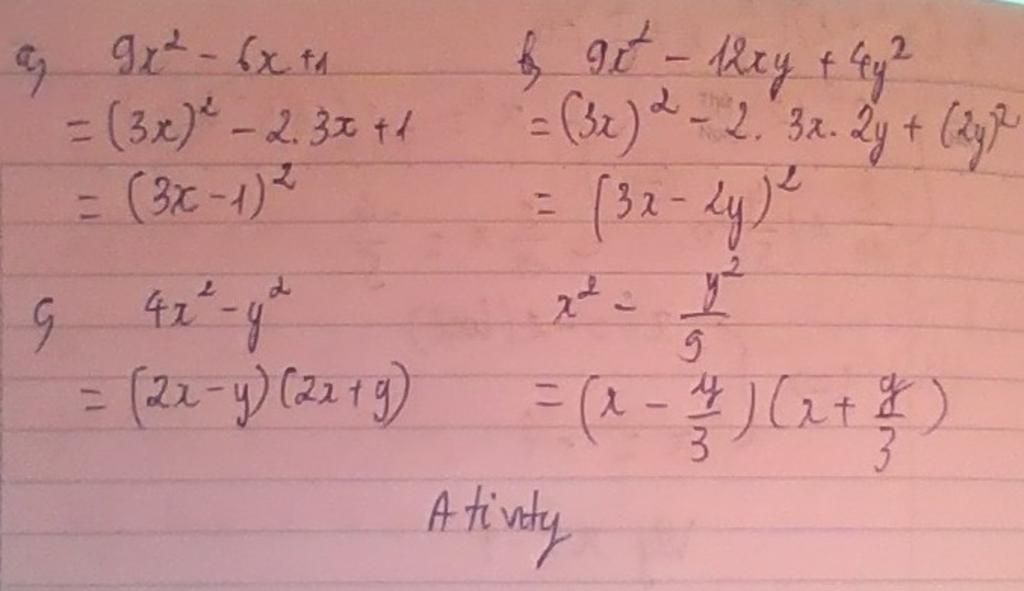 a, 9x² - 6x + 1
= (3x)² - 2.3x + 1
= (3x - 1)²
b, 9x² - 12xy + 4y²
= (3x)² - 2. 3x. 2y + (2y)²
= (3x - 2y)²
c, 4x² - y²
= (2x - y)(2x + y)
x² - y²/9
= (x - y/3)(x + y/3)